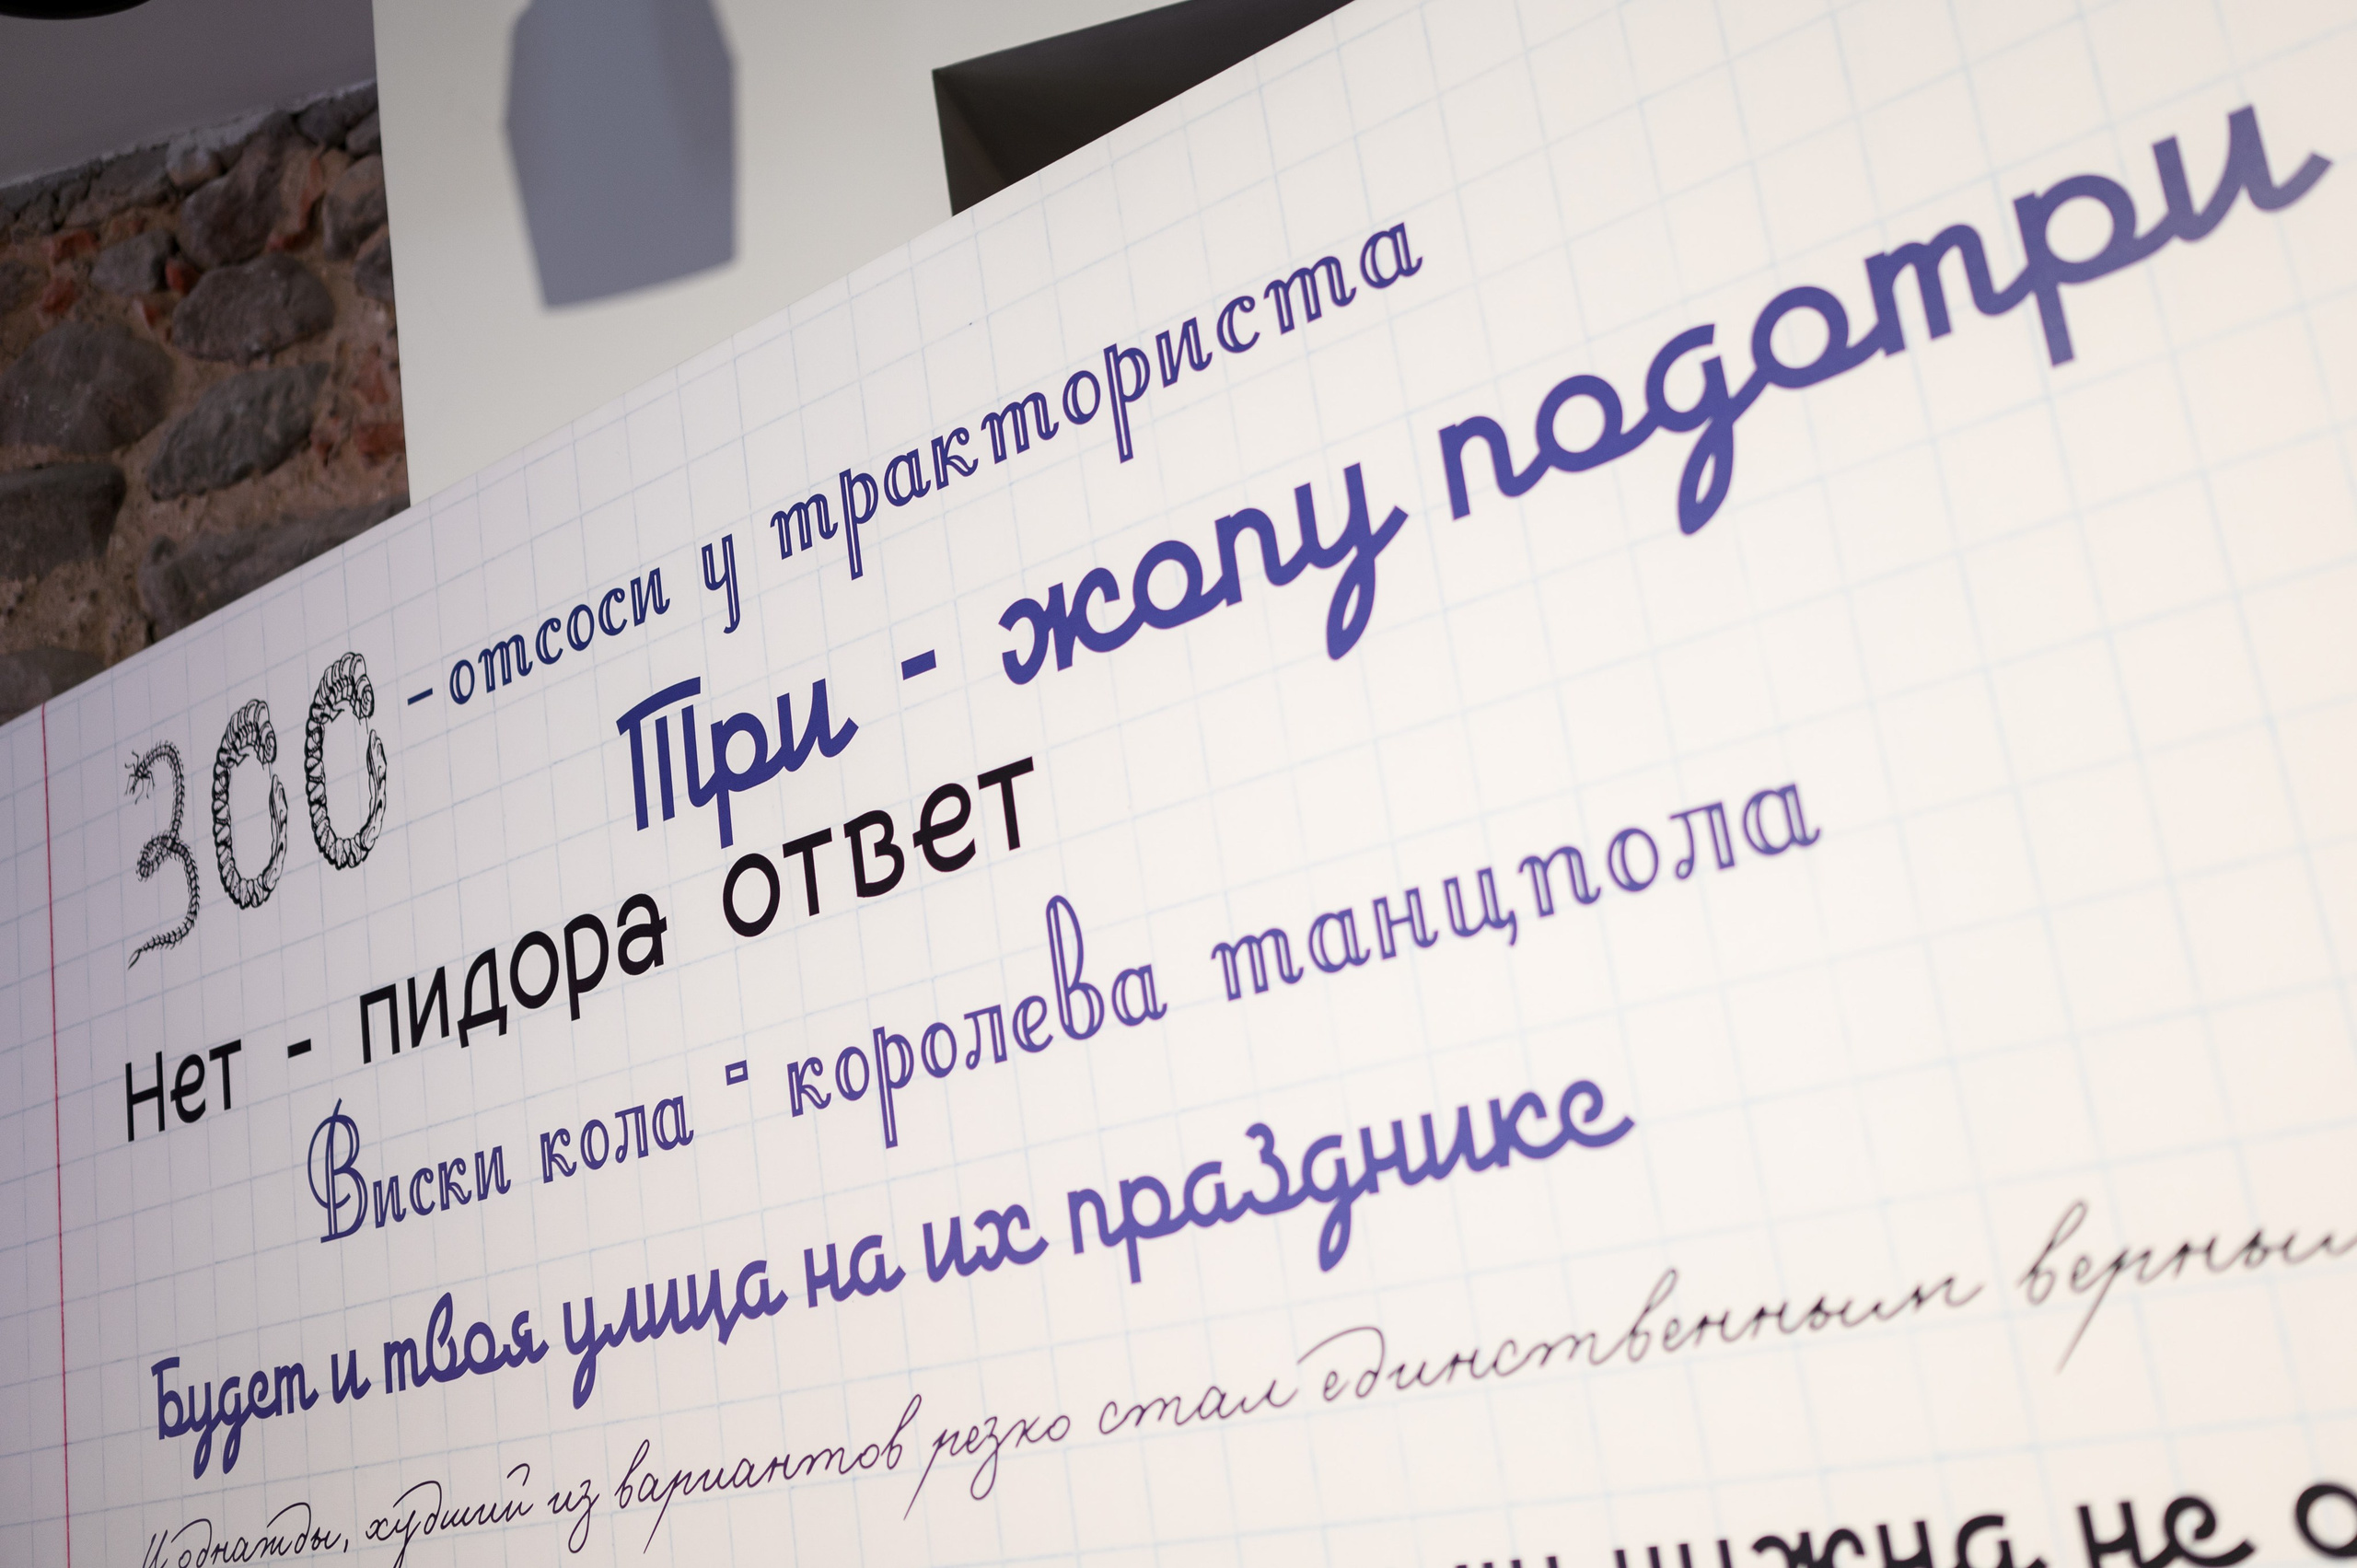 300 - отсоси у тракториста
Три - жопу подотри
Нет - пидора ответ
Виски кола - королева танцпола
Будет и твоя улица на их празднике
И однажды, худший из вариантов резко стал единственным
нужна не